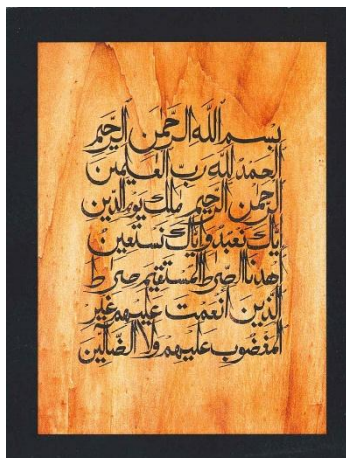 بسم الله الرحمن الرحيم
الحمد لله رب العلمين
الرحمن الرحيم ملك يوم الدين
إياك نعبد وإياك نستعين
اهدنا الصراط المستقيم صراط
الذين أنعمت عليهم غير
المغضوب عليهم ولا الضالين